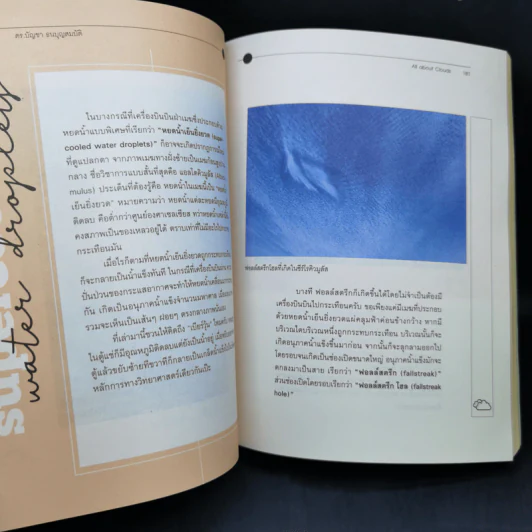 ดร.บัญชา ธนบุญสมบัติ
ในบางกรณีที่เครื่องบินบินผ่าเมฆซึ่งประกอบด้วย
หยดน้ำแบบพิเศษที่เรียกว่า "หยดน้ำเย็นยิ่งยวด (super-
cooled water droplets)" ก็อาจจะเกิดปรากฏการณ์
ที่ดูแปลกตา จากภาพเมฆทางฝั่งซ้ายเป็นเมฆก้อน
กลาง ชื่อวิชาการแบบสั้นที่สุดคือ แอลโตคิวมูลัส (Altocu-
mulus) ประเด็นที่ต้องรู้คือ หยดน้ำในเมฆนี้เป็น "หยดน้ำ
เย็นยิ่งยวด" หมายความว่า หยดน้ำแต่ละหยดมีอุณหภูมิ
ติดลบ คือต่ำกว่าศูนย์องศาเซลเซียส ทว่าหยดน้ำ
คงสภาพเป็นของเหลวอยู่ได้ ตราบเท่าที่ไม่มีอะไรไป
กระเทือนมัน
เมื่อไรก็ตามที่หยดน้ำเย็นยิ่งยวดถูกกระทบกระเทือน
ก็จะกลายเป็นน้ำแข็งทันที ในกรณีที่เครื่องบินบินผ่าน
ปั่นป่วนของกระแสอากาศจะทำให้หยดน้ำ
กัน เกิดเป็นอนุภาคน้ำแข็งจำนวนมหาศาล เมื่อมอง
รวมจะเห็นเป็นเส้นๆ ฝอยๆ ตรงกลางภาพนั่นเอง
ที่เล่ามานี้ชวนให้คิดถึง "เบียร์วุ้น"
ในตู้แช่ที่มีอุณหภูมิติดลบแต่ยังเป็นน้ำอยู่ เมื่อ
ตู้แล้วขยับซ้ายทีขวาทีก็กลายเป็นเกล็ดน้ำแข็ง
หลักการทางวิทยาศาสตร์เดียวกันเป๊ะ
water droplets
All about Clouds
ฟอลล์สตรีกโฮลที่เกิดในซีร์โรคิวมูลัส
บางที ฟอลล์สตรีกก็เกิดขึ้นได้โดยไม่จำเป็นต้องมี
เครื่องบินบินไปกระเทือนครับ ขอเพียงแค่มีเมฆที่ประกอบ
ด้วยหยดน้ำเย็นยิ่งยวดแผ่คลุมฟ้าค่อนข้างกว้าง หากมี
บริเวณใดบริเวณหนึ่งถูกกระทบกระเทือน บริเวณนั้นก็จะ
เกิดอนุภาคน้ำแข็งขึ้นมาก่อน จากนั้นก็จะลุกลามออกไป
โดยรอบจนเกิดเป็นช่องเปิดขนาดใหญ่ อนุภาคน้ำแข็งมักจะ
ตกลงมาเป็นสาย เรียกว่า "ฟอลล์สตรีก (fallstreak)"
ส่วนช่องเปิดโดยรอบเรียกว่า "ฟอลล์สตรีก โฮล (fallstreak
hole)"